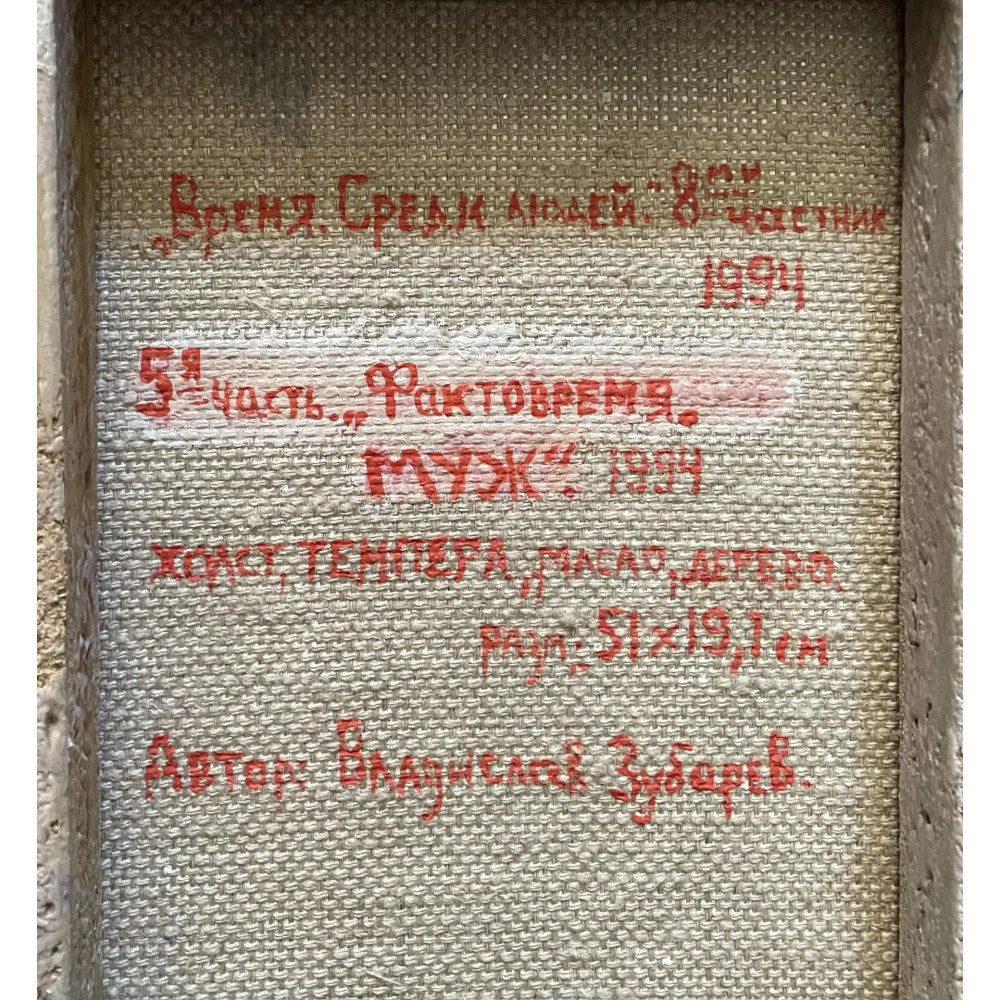 „Время. Среди людей." 8ми частник
1994
5я часть. „Фактовремя.
МУЖ". 1994
ХОЛСТ, ТЕМПЕРА, МАСЛО, ДЕРЕВО.
разм: 51×19,1 см
Автор: Владислав Зубарев.